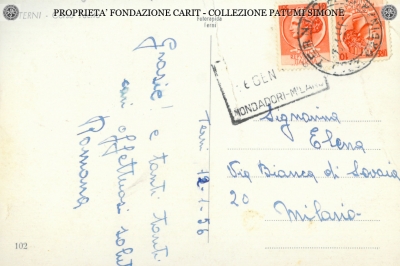 PROPRIETA' FONDAZIONE CARIT - COLLEZIONE PATUMI SIMONE
TERNI -
Fotorapida
Terni
GEN
MONDADORI-MILANO
Grazie! e tanti tanti
cari affettuosi saluti
Romana
Terni 12-1-56
Signorina
Elena
Via Bianca di Savoia
20
Milano
102